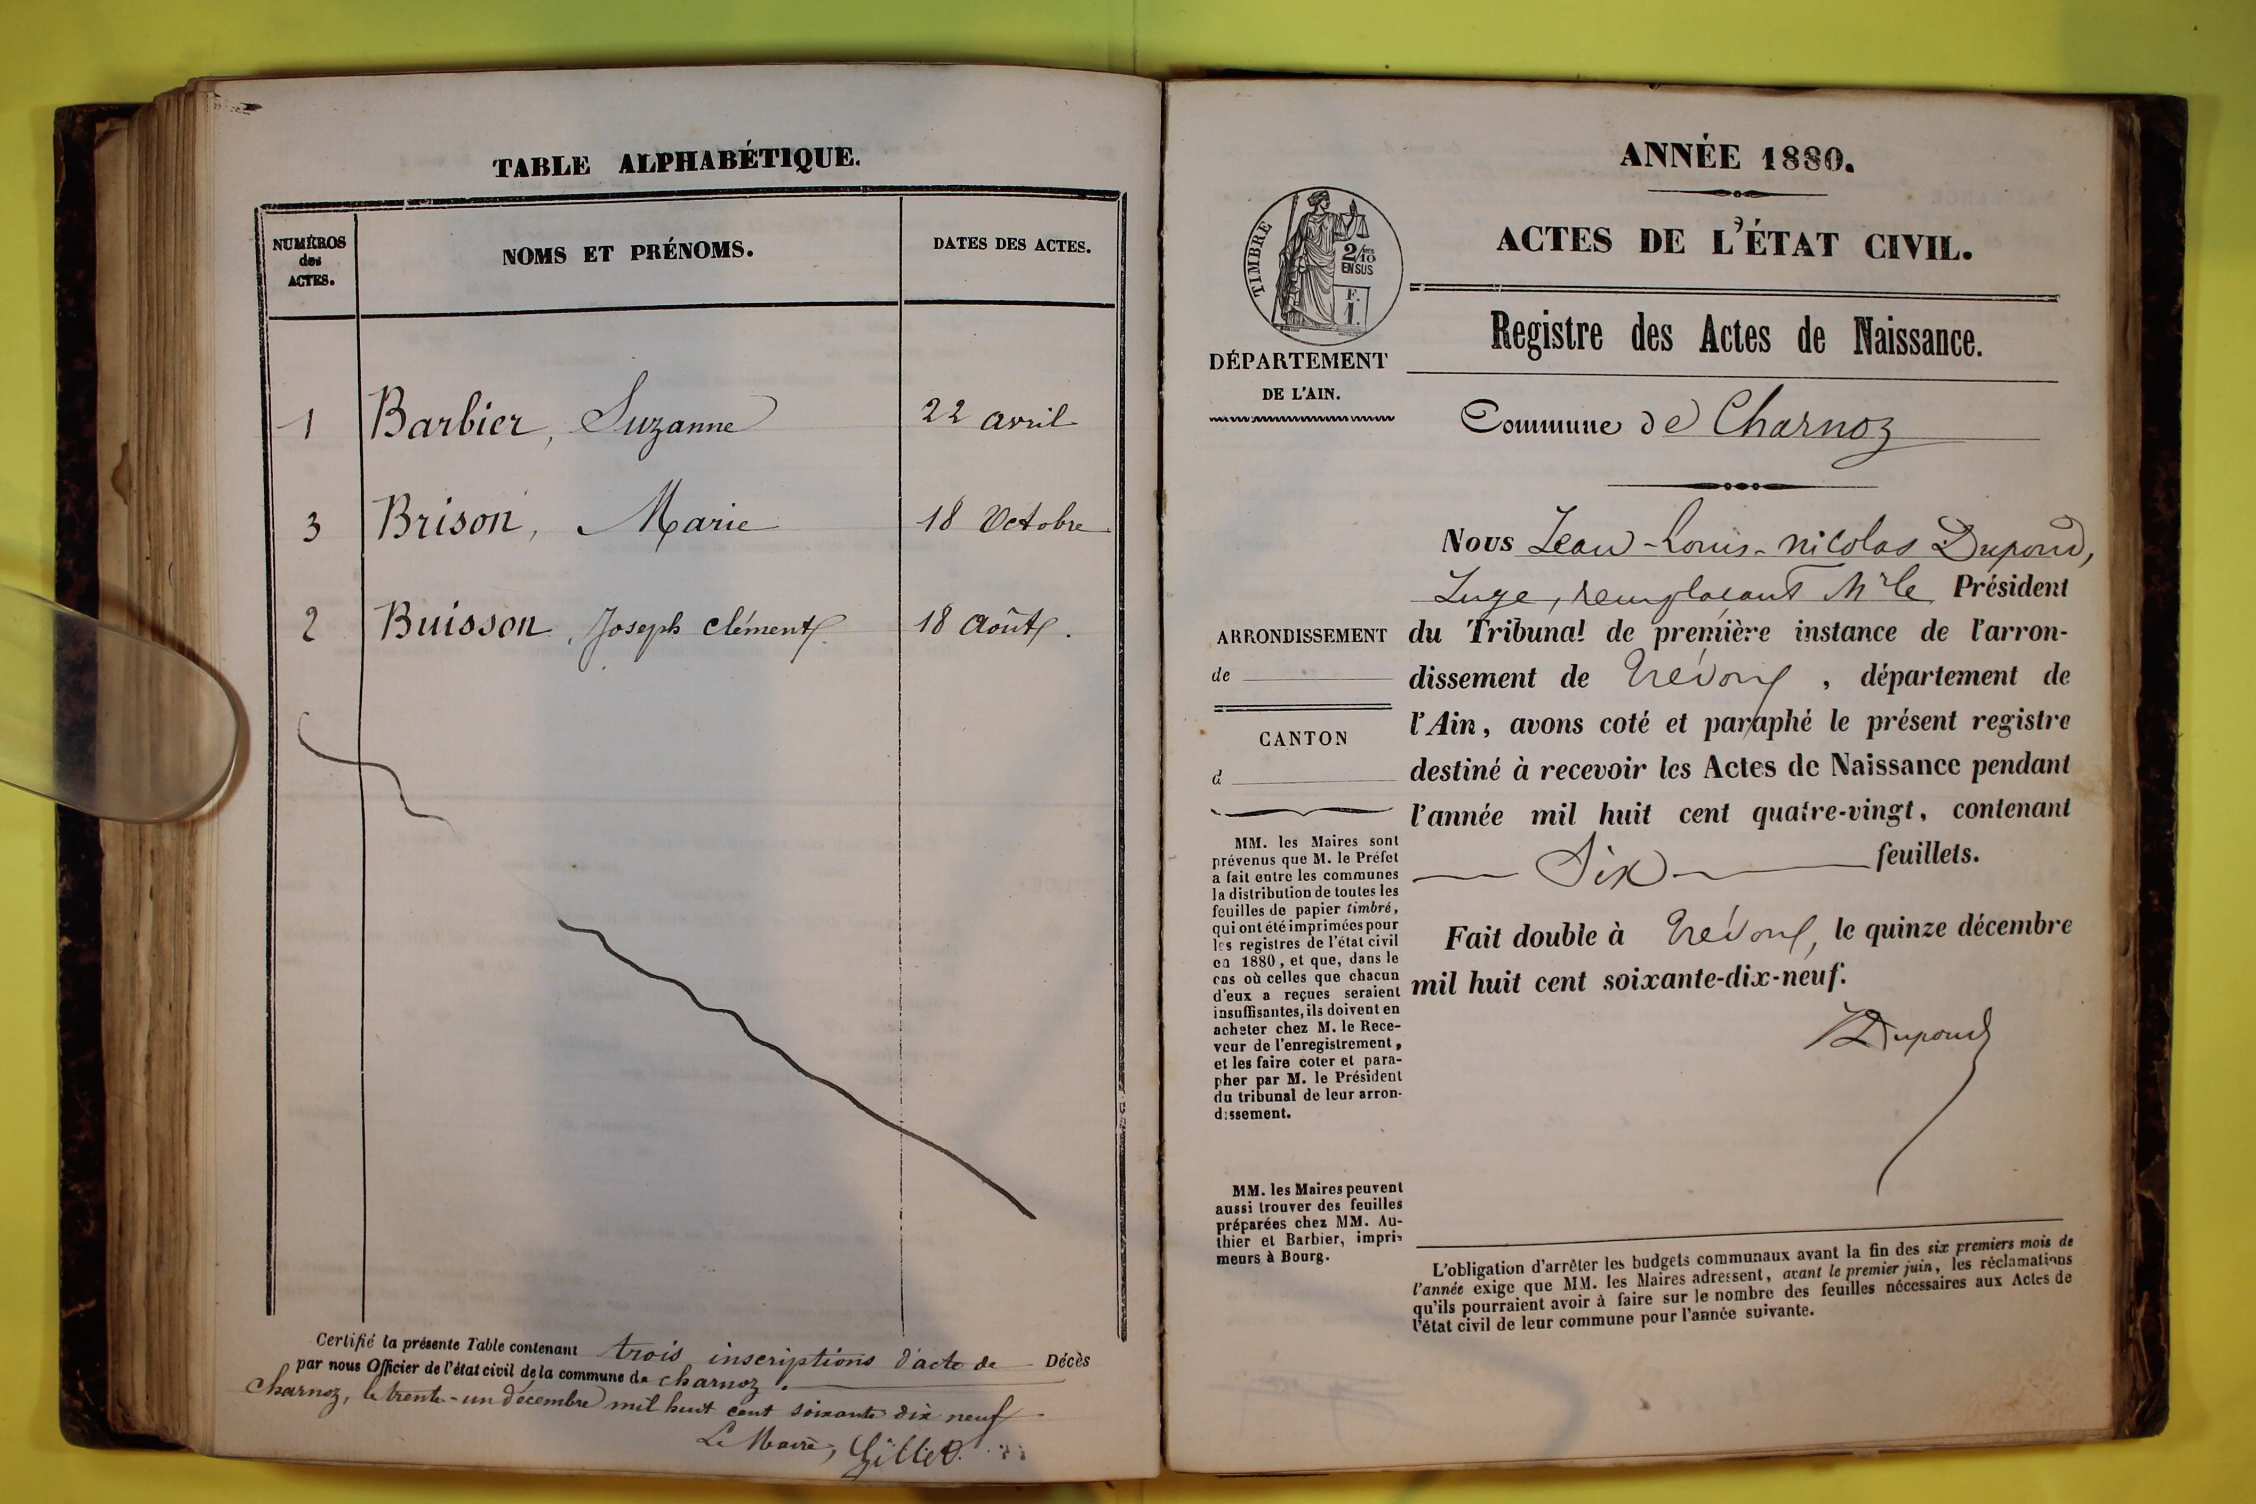 TABLE ALPHABÉTIQUE.
NUMÉROS
des
ACTES.
NOMS ET PRÉNOMS.
DATES DES ACTES.
1 Barbier, Suzanne 22 avril
3 Brison, Marie 18 Octobre
2 Buisson, Joseph Clément 18 Août.
Certifié la présente Table contenant trois inscriptions d'acte de Décès
par nous Officier de l'état civil de la commune de charnoz.
Charnoz, le trente-un décembre mil huit cent soixante dix neuf
Le Maire, Gillet
ANNÉE 1880.
ACTES DE L'ÉTAT CIVIL.
TIMBRE
2/10
EN SUS
F.
1.
Registre des Actes de Naissance.
DÉPARTEMENT
DE L'AIN.
Commune de Charnoz
Nous Jean-Louis-Nicolas Dupond,
Juge, remplaçant Mr le Président
du Tribunal de première instance de l'arron-
dissement de Trévoux, département de
l'Ain, avons coté et paraphé le présent registre
destiné à recevoir les Actes de Naissance pendant
l'année mil huit cent quatre-vingt, contenant
Six feuillets.
Fait double à Trévoux, le quinze décembre
mil huit cent soixante-dix-neuf.
Dupond
ARRONDISSEMENT
de
CANTON
d
MM. les Maires sont
prévenus que M. le Préfet
a fait entre les communes
la distribution de toutes les
feuilles de papier timbré,
qui ont été imprimées pour
les registres de l'état civil
en 1880, et que, dans le
cas où celles que chacun
d'eux a reçues seraient
insuffisantes, ils doivent en
acheter chez M. le Rece-
veur de l'enregistrement,
et les faire coter et para-
pher par M. le Président
du tribunal de leur arron-
dissement.
MM. les Maires peuvent
aussi trouver des feuilles
préparées chez MM. Au-
thier et Barbier, impri-
meurs à Bourg.
L'obligation d'arrêter les budgets communaux avant la fin des six premiers mois de
l'année exige que MM. les Maires adressent, avant le premier juin, les réclamations
qu'ils pourraient avoir à faire sur le nombre des feuilles nécessaires aux Actes de
l'état civil de leur commune pour l'année suivante.